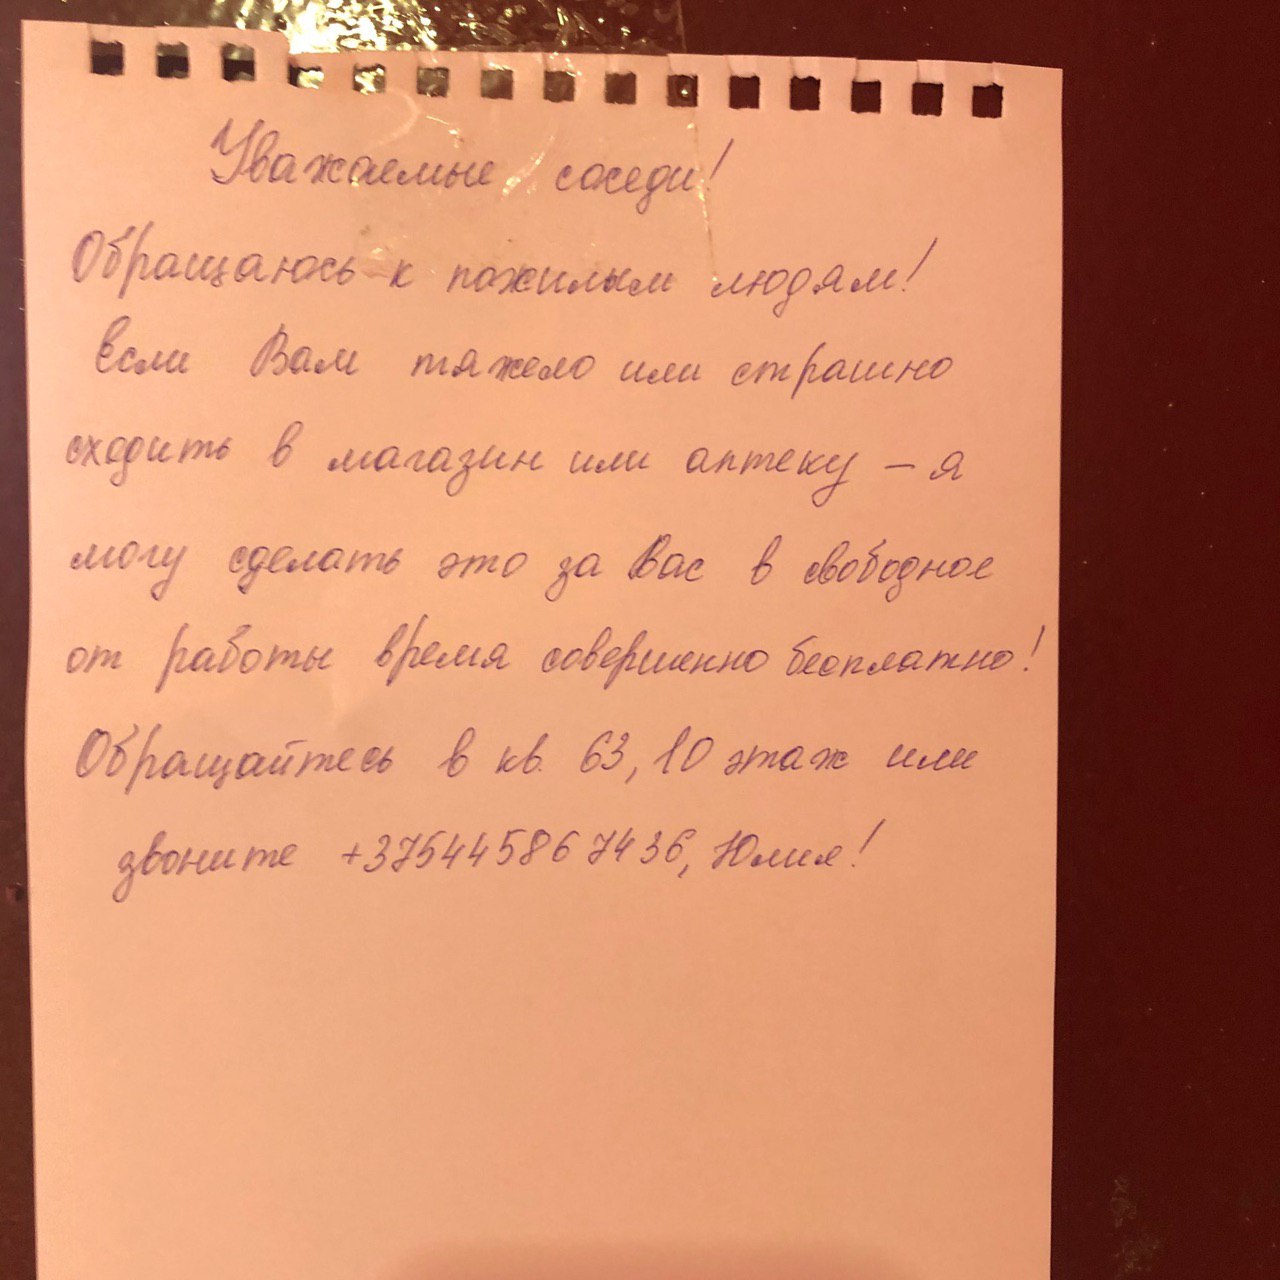 Уважаемые соседи!
Обращаюсь к пожилым людям!
Если Вам тяжело или страшно
сходить в магазин или аптеку – я
могу сделать это за Вас в свободное
от работы время совершенно бесплатно!
Обращайтесь в кв. 63, 10 этаж или
звоните +375445867436, Юлия!